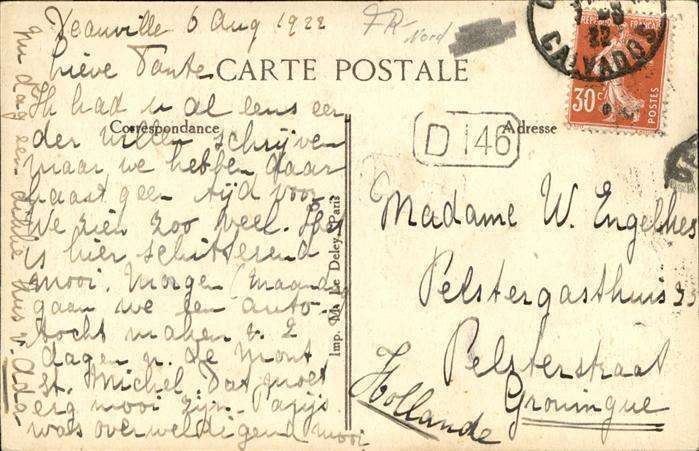 Deauville 6 Aug 1922
FR
Nord
Lieve Tante
CARTE POSTALE
Correspondance
Adresse
D 146
Ik had u al eens eer
der willen schrijven
maar we hebben daar
haast geen tijd voor
We zien zoo veel. Het
is hier schitterend
mooi. Morgen (maand
gaan we een auto-
tocht maken v. 2
dagen n. de Mont
St. Michel. Dat moet
erg mooi zijn. Parijs
was overweldigend mooi
Nu dag een dikke kus v. Ada
Imp. Le Deley, Paris
Madame W. Engelkes
Pelstergasthuis 20
Pelsterstraat
Groningue
Hollande
CALVADOS
30c
POSTES